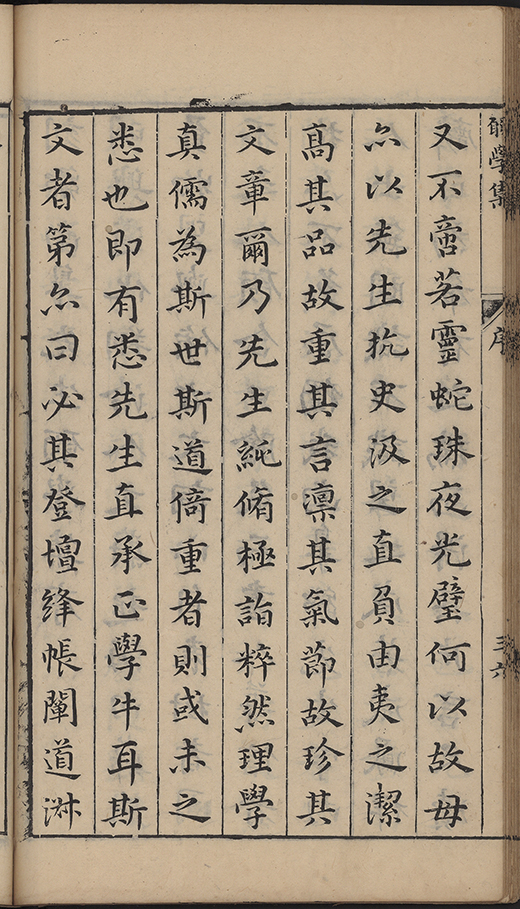 學集
序
又不啻若靈蛇珠夜光璧何以故毋
尒以先生抗史汲之直負由夷之潔
髙其品故重其言凛其氣節故珍其
文章爾乃先生純脩極詣粹然理學
真儒為斯世斯道倚重者則或未之
悉也即有悉先生直承正學牛耳斯
文者第尒曰必其登壇絳帳闡道淋